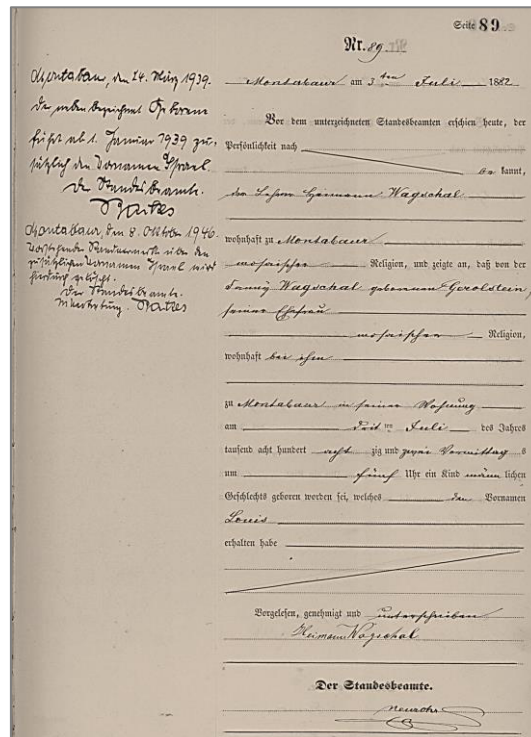 Seite 89
Nr. 89
Montabaur, den 14. März 1939.
Der nebenbezeichnete Geborene
führt ab 1. Januar 1939 zu-
sätzlich den Vornamen Israel.
Der Standesbeamte.
Montabaur, den 8. Oktober 1946.
Vorstehender Randvermerk über den
zusätzlichen Vornamen Israel wird
hierdurch gelöscht.
Der Standesbeamte.
In Vertretung.
Montabaur am 3ten Juli 1882
Vor dem unterzeichneten Standesbeamten erschien heute, der
Persönlichkeit nach
be kannt,
der Lehrer Heimann Wagschal
wohnhaft zu Montabaur
mosaischer Religion, und zeigte an, daß von der
Fanny Wagschal geborenen Gerolstein
seiner Ehefrau
mosaischer Religion,
wohnhaft bei ihm
zu Montabaur in seiner Wohnung
am drit ten Juli des Jahres
tausend acht hundert acht zig und zwei Vormittag s
um fünf Uhr ein Kind männ lichen
Geschlechts geboren worden sei, welches den Vornamen
Louis
erhalten habe
Vorgelesen, genehmigt und unterschrieben
Heimann Wagschal
Der Standesbeamte.
Neurohr